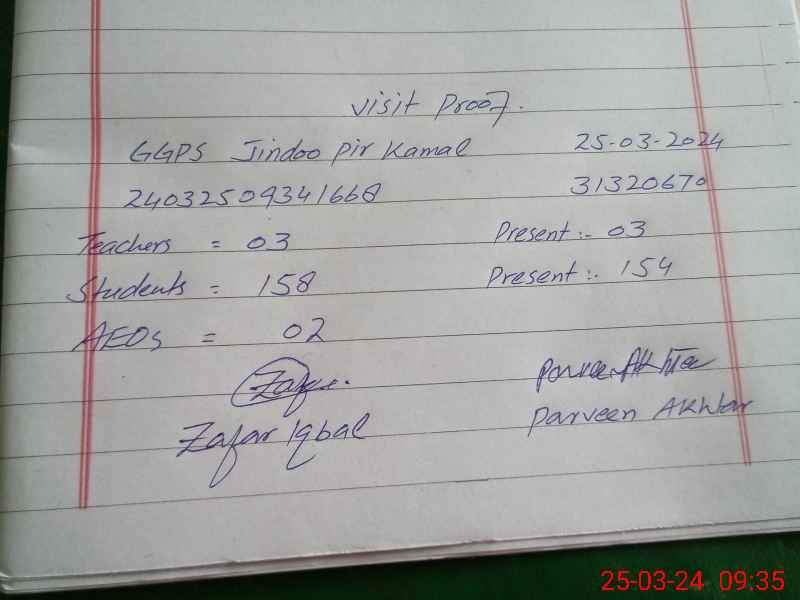 visit Proof.
GGPS Jindoo Pir Kamal 25-03-2024
24032509341668 31320670
Teachers = 03 Present :- 03
Students = 158 Present :- 154
AEOs = 02
Zafar Parveen Akhtar
Zafar Iqbal Parveen Akhtar
25-03-24 09:35